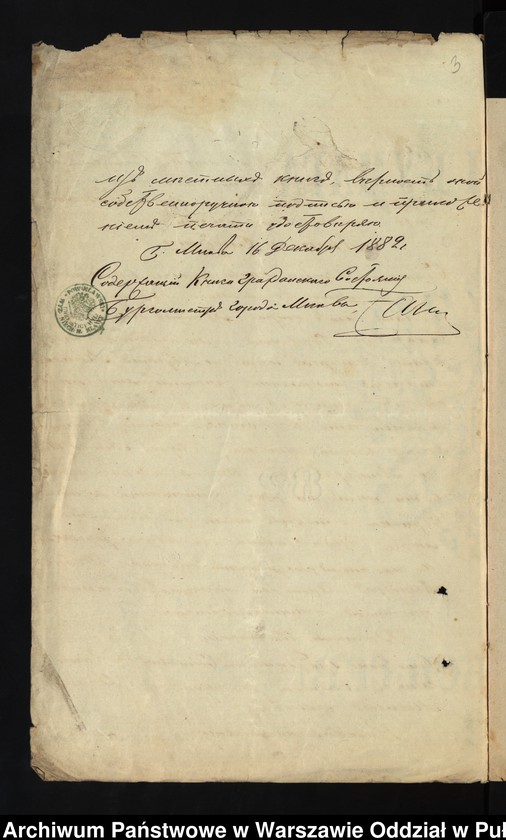 3
изъ местныхъ книгъ, верность кой
собственноручною подписью и приложе
ніемъ печати удостоверяю
Г. Млава 16 Декабря 1882 г.
Содержащій Книги Гражданскаго Состоянія
Бургомистръ города Млавы
Archiwum Państwowe w Warszawie Oddział w Puł